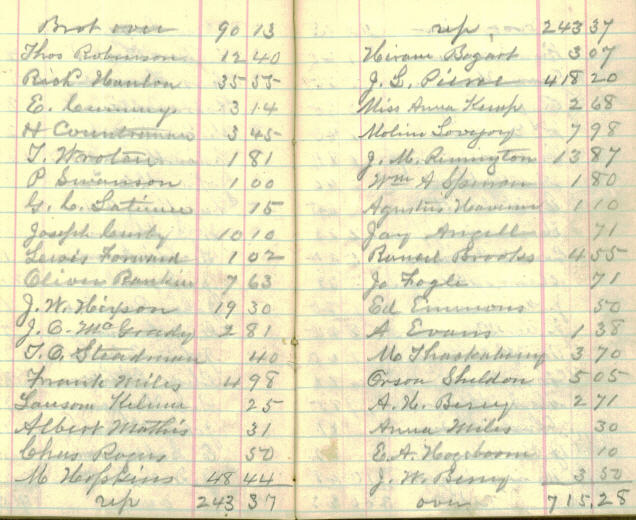 Brot over 90 13
Thos Robinson 12 40
Rich Hanlon 35 55
E. 3 14
H Countreman 3 45
T. Wroten 1 81
P Swanson 1 00
G. C. 15
Joseph Curby 10 10
Lewis Forward 1 02
Oliver Rankin 7 63
J. W. Hixson 19 30
J. C. McGrady 2 81
T. C. Steadman 40
Frank Miles 4 98
Lansom 25
Albert Mathis 31
Chas 50
M Hopkins 48 44
up 243 37
up 243 37
Hiram Bogart 3 07
J. L. Pierce 418 20
Miss Anna Kemp 2 68
Molin Lovejoy 7 98
J. M. Rimington 13 87
Wm A 1 80
1 10
Jay Angell 71
Brooks 4 55
Jo Fogle 71
Ed Emmons 50
A Evans 1 38
M 3 70
Orson Sheldon 5 05
A. H. Berry 2 71
Anna Miles 30
E. A. Hogeboom 10
J. W. Berry 3 50
over 715,28